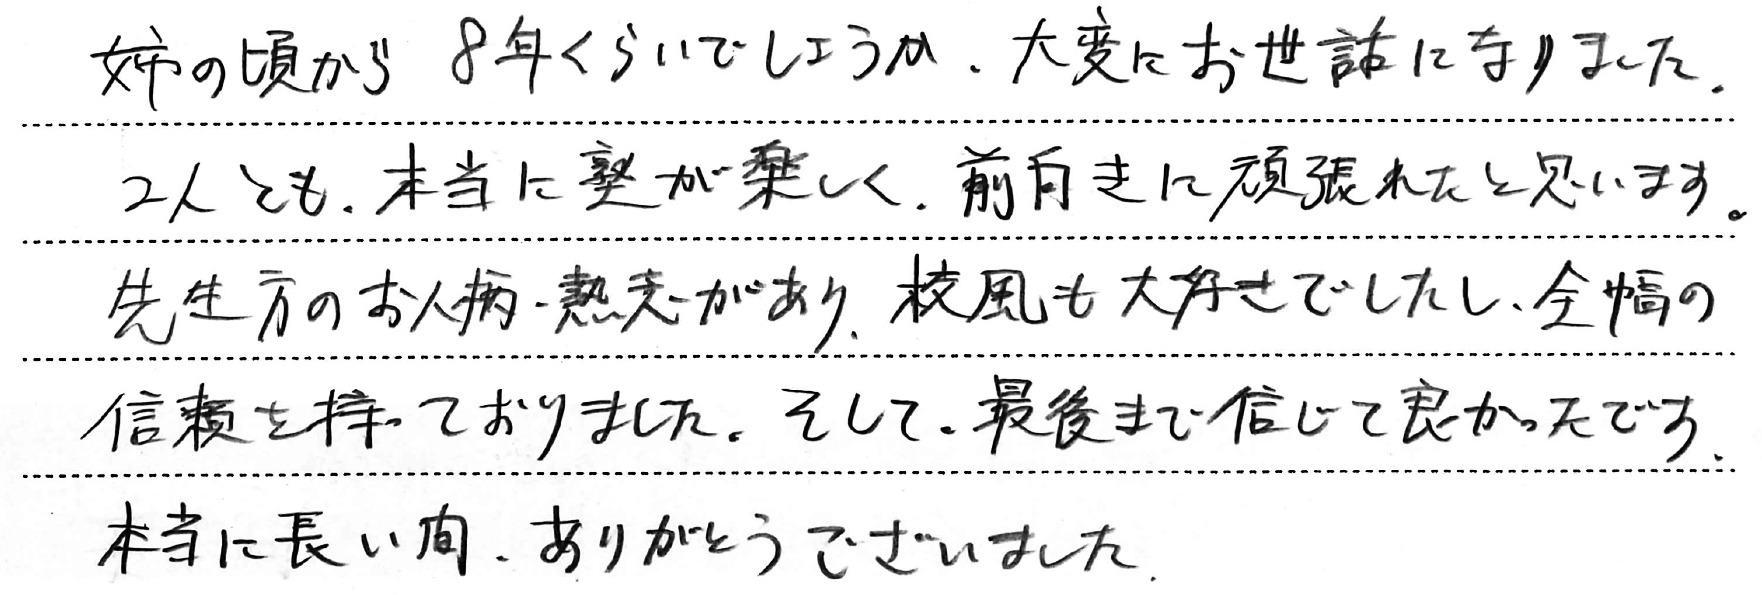 姉の頃から 8年くらいでしょうか、大変にお世話になりました。
2人とも、本当に塾が楽しく、前向きに頑張れたと思います。
先生方のお人柄・熱意があり、校風も大好きでしたし、全幅の
信頼を持っておりました。そして、最後まで信じて良かったです。
本当に長い間、ありがとうございました。